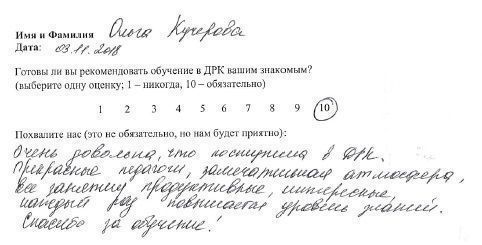 Имя и Фамилия Ольга Кучерова
Дата: 03.11.2018
Готовы ли вы рекомендовать обучение в ДРК вашим знакомым?
(выберите одну оценку; 1 – никогда, 10 – обязательно)
1 2 3 4 5 6 7 8 9 10
Похвалите нас (это не обязательно, но нам будет приятно):
Очень довольна, что поступила в ДРК.
Прекрасные педагоги, замечательная атмосфера,
все занятия продуктивные, интересные,
каждый раз повышается уровень знаний.
Спасибо за обучение!